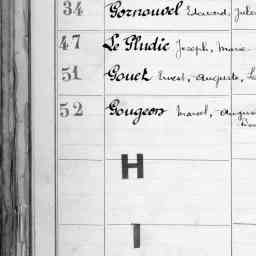 34 Gornouvel Edouard, Jules
47 Le Gludic Joseph, Marie
51 Gouez Ernest, Auguste,
52 Gougeon Marcel,
H
I